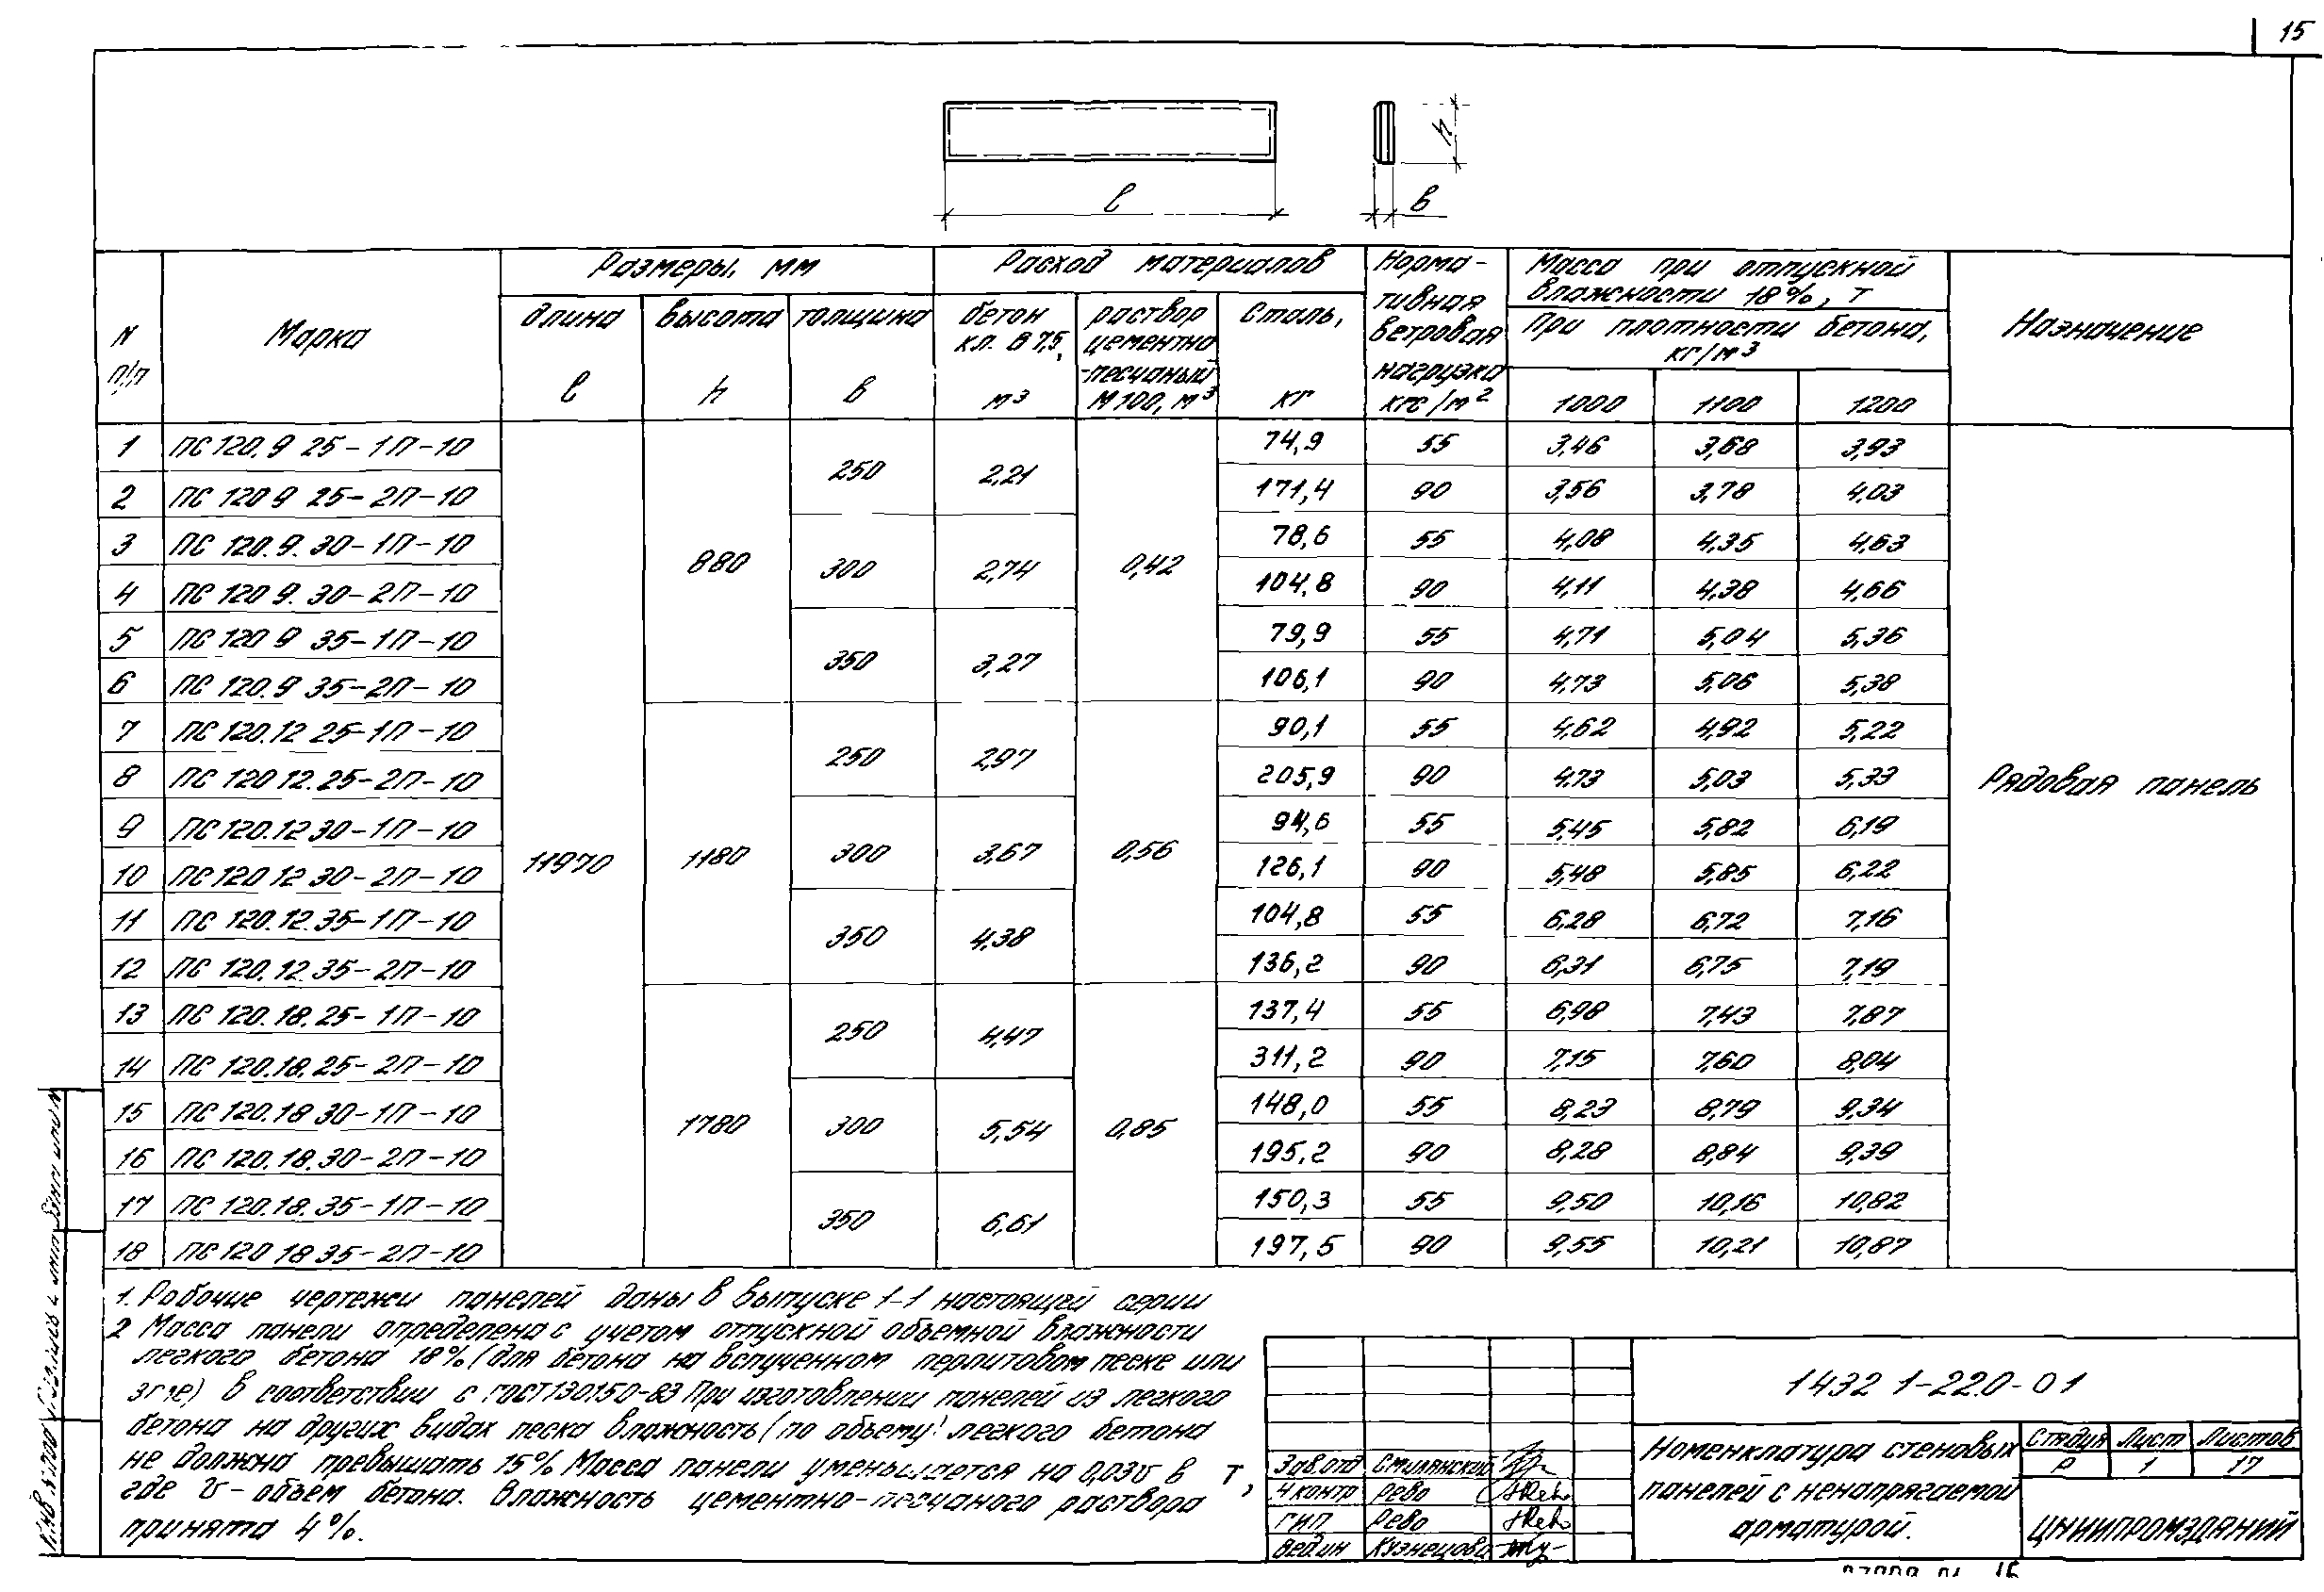 15
l
h
в
N п/п
Марка
Размеры, мм
Расход материалов
Норма-
тивная
ветровая
нагрузка
кгс/м²
Масса при отпускной
влажности 18%, т
При плотности бетона,
кг/м³
Назначение
длина
l
высота
h
толщина
в
бетон
кл. В 7,5,
м³
раствор
цементно
-песчаный
М 100, м³
Сталь,
кг
1000 1100 1200
1 ПС 120.9 25-1П-10 11970 880 250 2,21 0,42 74,9 55 3,46 3,68 3,93 Рядовая панель
2 ПС 120 9 25-2П-10 171,4 90 3,56 3,78 4,03
3 ПС 120.9.30-1П-10 300 2,74 78,6 55 4,08 4,35 4,63
4 ПС 120 9.30-2П-10 104,8 90 4,11 4,38 4,66
5 ПС 120 9 35-1П-10 350 3,27 79,9 55 4,71 5,04 5,36
6 ПС 120.9 35-2П-10 106,1 90 4,73 5,06 5,38
7 ПС 120.12 25-1П-10 1180 250 2,97 0,56 90,1 55 4,62 4,92 5,22
8 ПС 120 12.25-2П-10 205,9 90 4,73 5,03 5,33
9 ПС 120.12 30-1П-10 300 3,67 94,6 55 5,45 5,82 6,19
10 ПС 120 12 30-2П-10 126,1 90 5,48 5,85 6,22
11 ПС 120.12.35-1П-10 350 4,38 104,8 55 6,28 6,72 7,16
12 ПС 120.12.35-2П-10 136,2 90 6,31 6,75 7,19
13 ПС 120.18.25-1П-10 1780 250 4,47 0,85 137,4 55 6,98 7,43 7,87
14 ПС 120.18.25-2П-10 311,2 90 7,15 7,60 8,04
15 ПС 120.18 30-1П-10 300 5,54 148,0 55 8,23 8,79 9,34
16 ПС 120.18.30-2П-10 195,2 90 8,28 8,84 9,39
17 ПС 120.18.35-1П-10 350 6,61 150,3 55 9,50 10,16 10,82
18 ПС 120 18 35-2П-10 197,5 90 9,55 10,21 10,87
1. Рабочие чертежи панелей даны в выпуске 1-1 настоящей серии
2 Масса панели определена с учетом отпускной объемной влажности
легкого бетона 18% (для бетона на вспученном перлитовом песке или
золе) в соответствии с ГОСТ 13015.0-83 При изготовлении панелей из легкого
бетона на других видах песка влажность (по объему) легкого бетона
не должна превышать 15% Масса панели уменьшается на 0,03v в т,
где v - объем бетона. Влажность цементно-песчаного раствора
принята 4%.
1432 1-22.0-01
Зав.отд Смилянский
Н контр Рево
ГИП Рево
Вед.ин Кузнецова
Номенклатура стеновых
панелей с ненапрягаемой
арматурой.
Стадия Лист Листов
Р 1 17
ЦНИИПРОМЗДАНИЙ
Инв. № подл. Подпись и дата Взам. инв. №
16